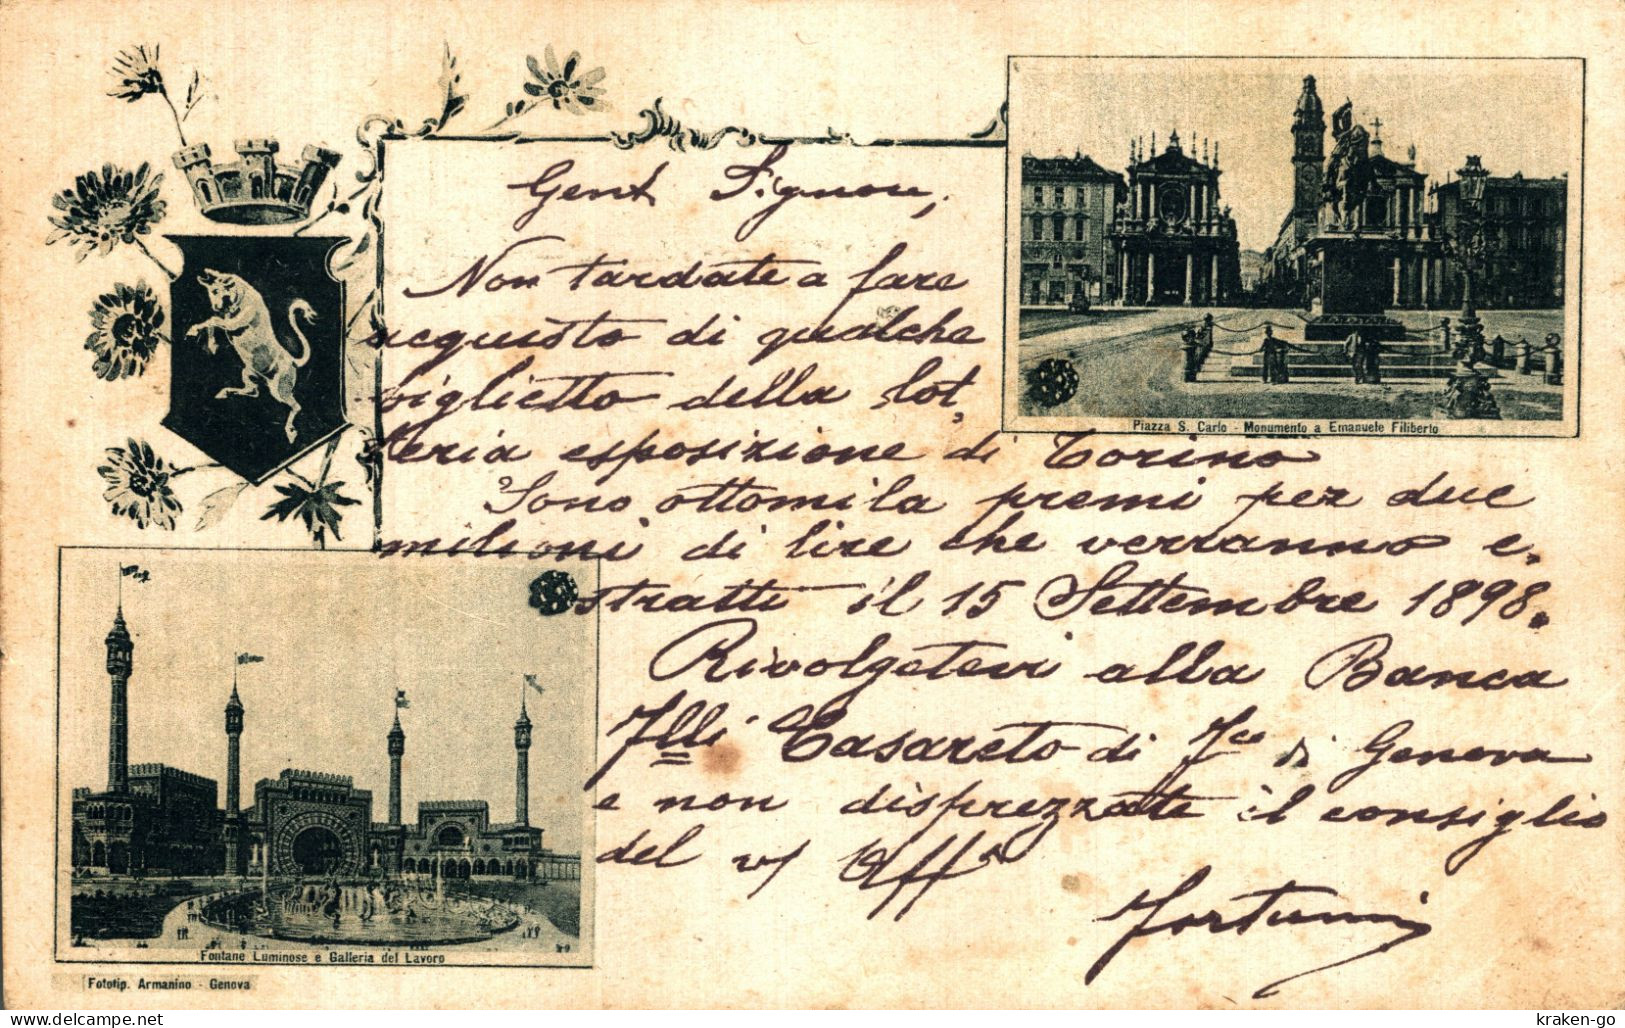 Gent Signore,
Non tardate a fare
acquisto di qualche
biglietto della lot,
teria esposizione di Torino
Sono ottomila premi per due
milioni di lire che verranno e,
stratti il 15 Settembre 1898.
Rivolgetevi alla Banca
Flli Casareto di Fco di Genova
e non disprezzate il consiglio
del v/ Affo
Fortuni
Piazza S. Carlo - Monumento a Emanuele Filiberto
Fontane Luminose e Galleria del Lavoro
Fototip. Armanino - Genova
kraken-go